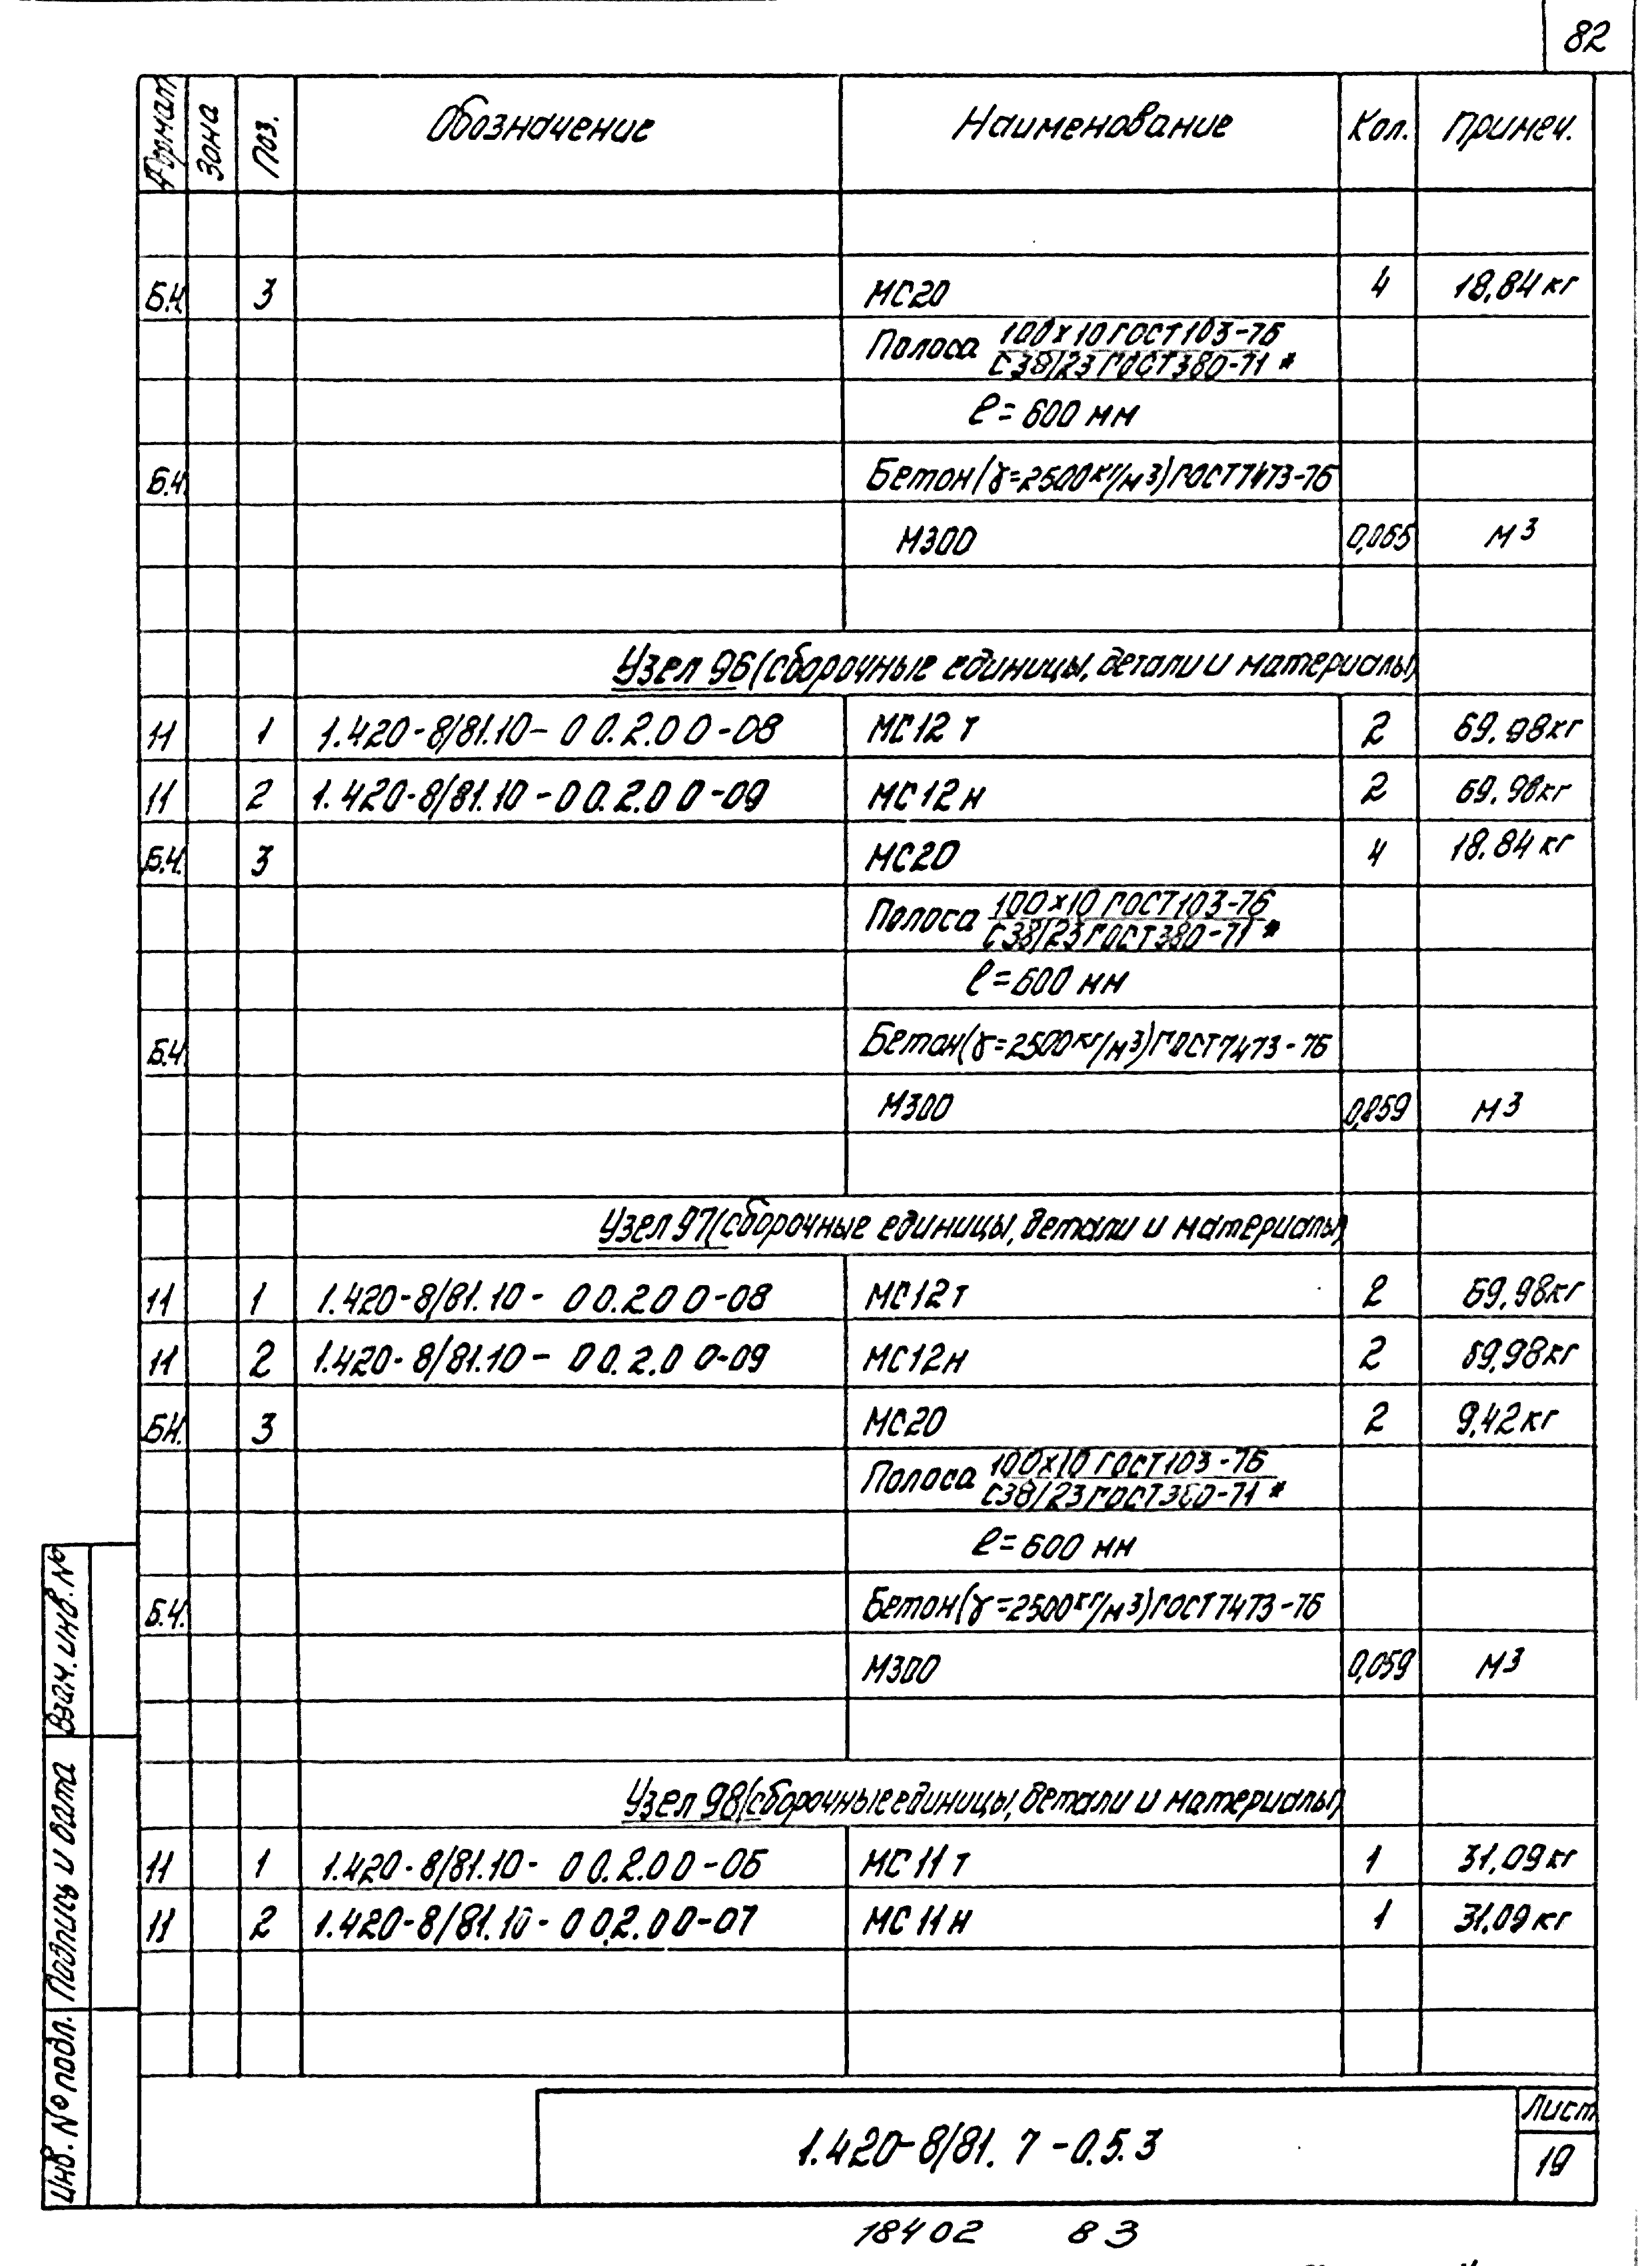 82
Формат Зона Поз. Обозначение Наименование Кол. Примеч.
Б.Ч. 3 МС20 4 18,84 кг
Полоса 100х10 ГОСТ 103-76
С38/23 ГОСТ 380-71 *
ℓ = 600 мм
Б.Ч. Бетон (γ=2500 кг/м3) ГОСТ 7473-76
М300 0,065 м3
Узел 96 (сборочные единицы, детали и материалы)
11 1 1.420-8/81.10-00.2.00-08 МС12т 2 69.98 кг
11 2 1.420-8/81.10-00.2.00-09 МС12н 2 69.98 кг
Б.Ч. 3 МС20 4 18.84 кг
Полоса 100х10 ГОСТ 103-76
С38/23 ГОСТ 380-71 *
ℓ = 600 мм
Б.Ч. Бетон (γ=2500 кг/м3) ГОСТ 7473-76
М300 м3
Узел 97 (сборочные единицы, детали и материалы)
11 1 1.420-8/81.10-00.200-08 МС12т 2 69,98 кг
11 2 1.420-8/81.10-00.2.00-09 МС12н 2 69,98 кг
Б.Ч. 3 МС20 2 9,42 кг
Полоса 100х10 ГОСТ 103-76
С38/23 ГОСТ 380-71 *
ℓ = 600 мм
Б.Ч. Бетон (γ=2500 кг/м3) ГОСТ 7473-76
М300 0,059 м3
Узел 98 (сборочные единицы, детали и материалы)
11 1 1.420-8/81.10-00.2.00-06 МС11т 1 31,09 кг
11 2 1.420-8/81.10-00.2.00-07 МС11н 1 31,09 кг
Взам. инв. №
Подпись и дата
Инв. № подл.
1.420-8/81.7-0.5.3
Лист
19
18402 83